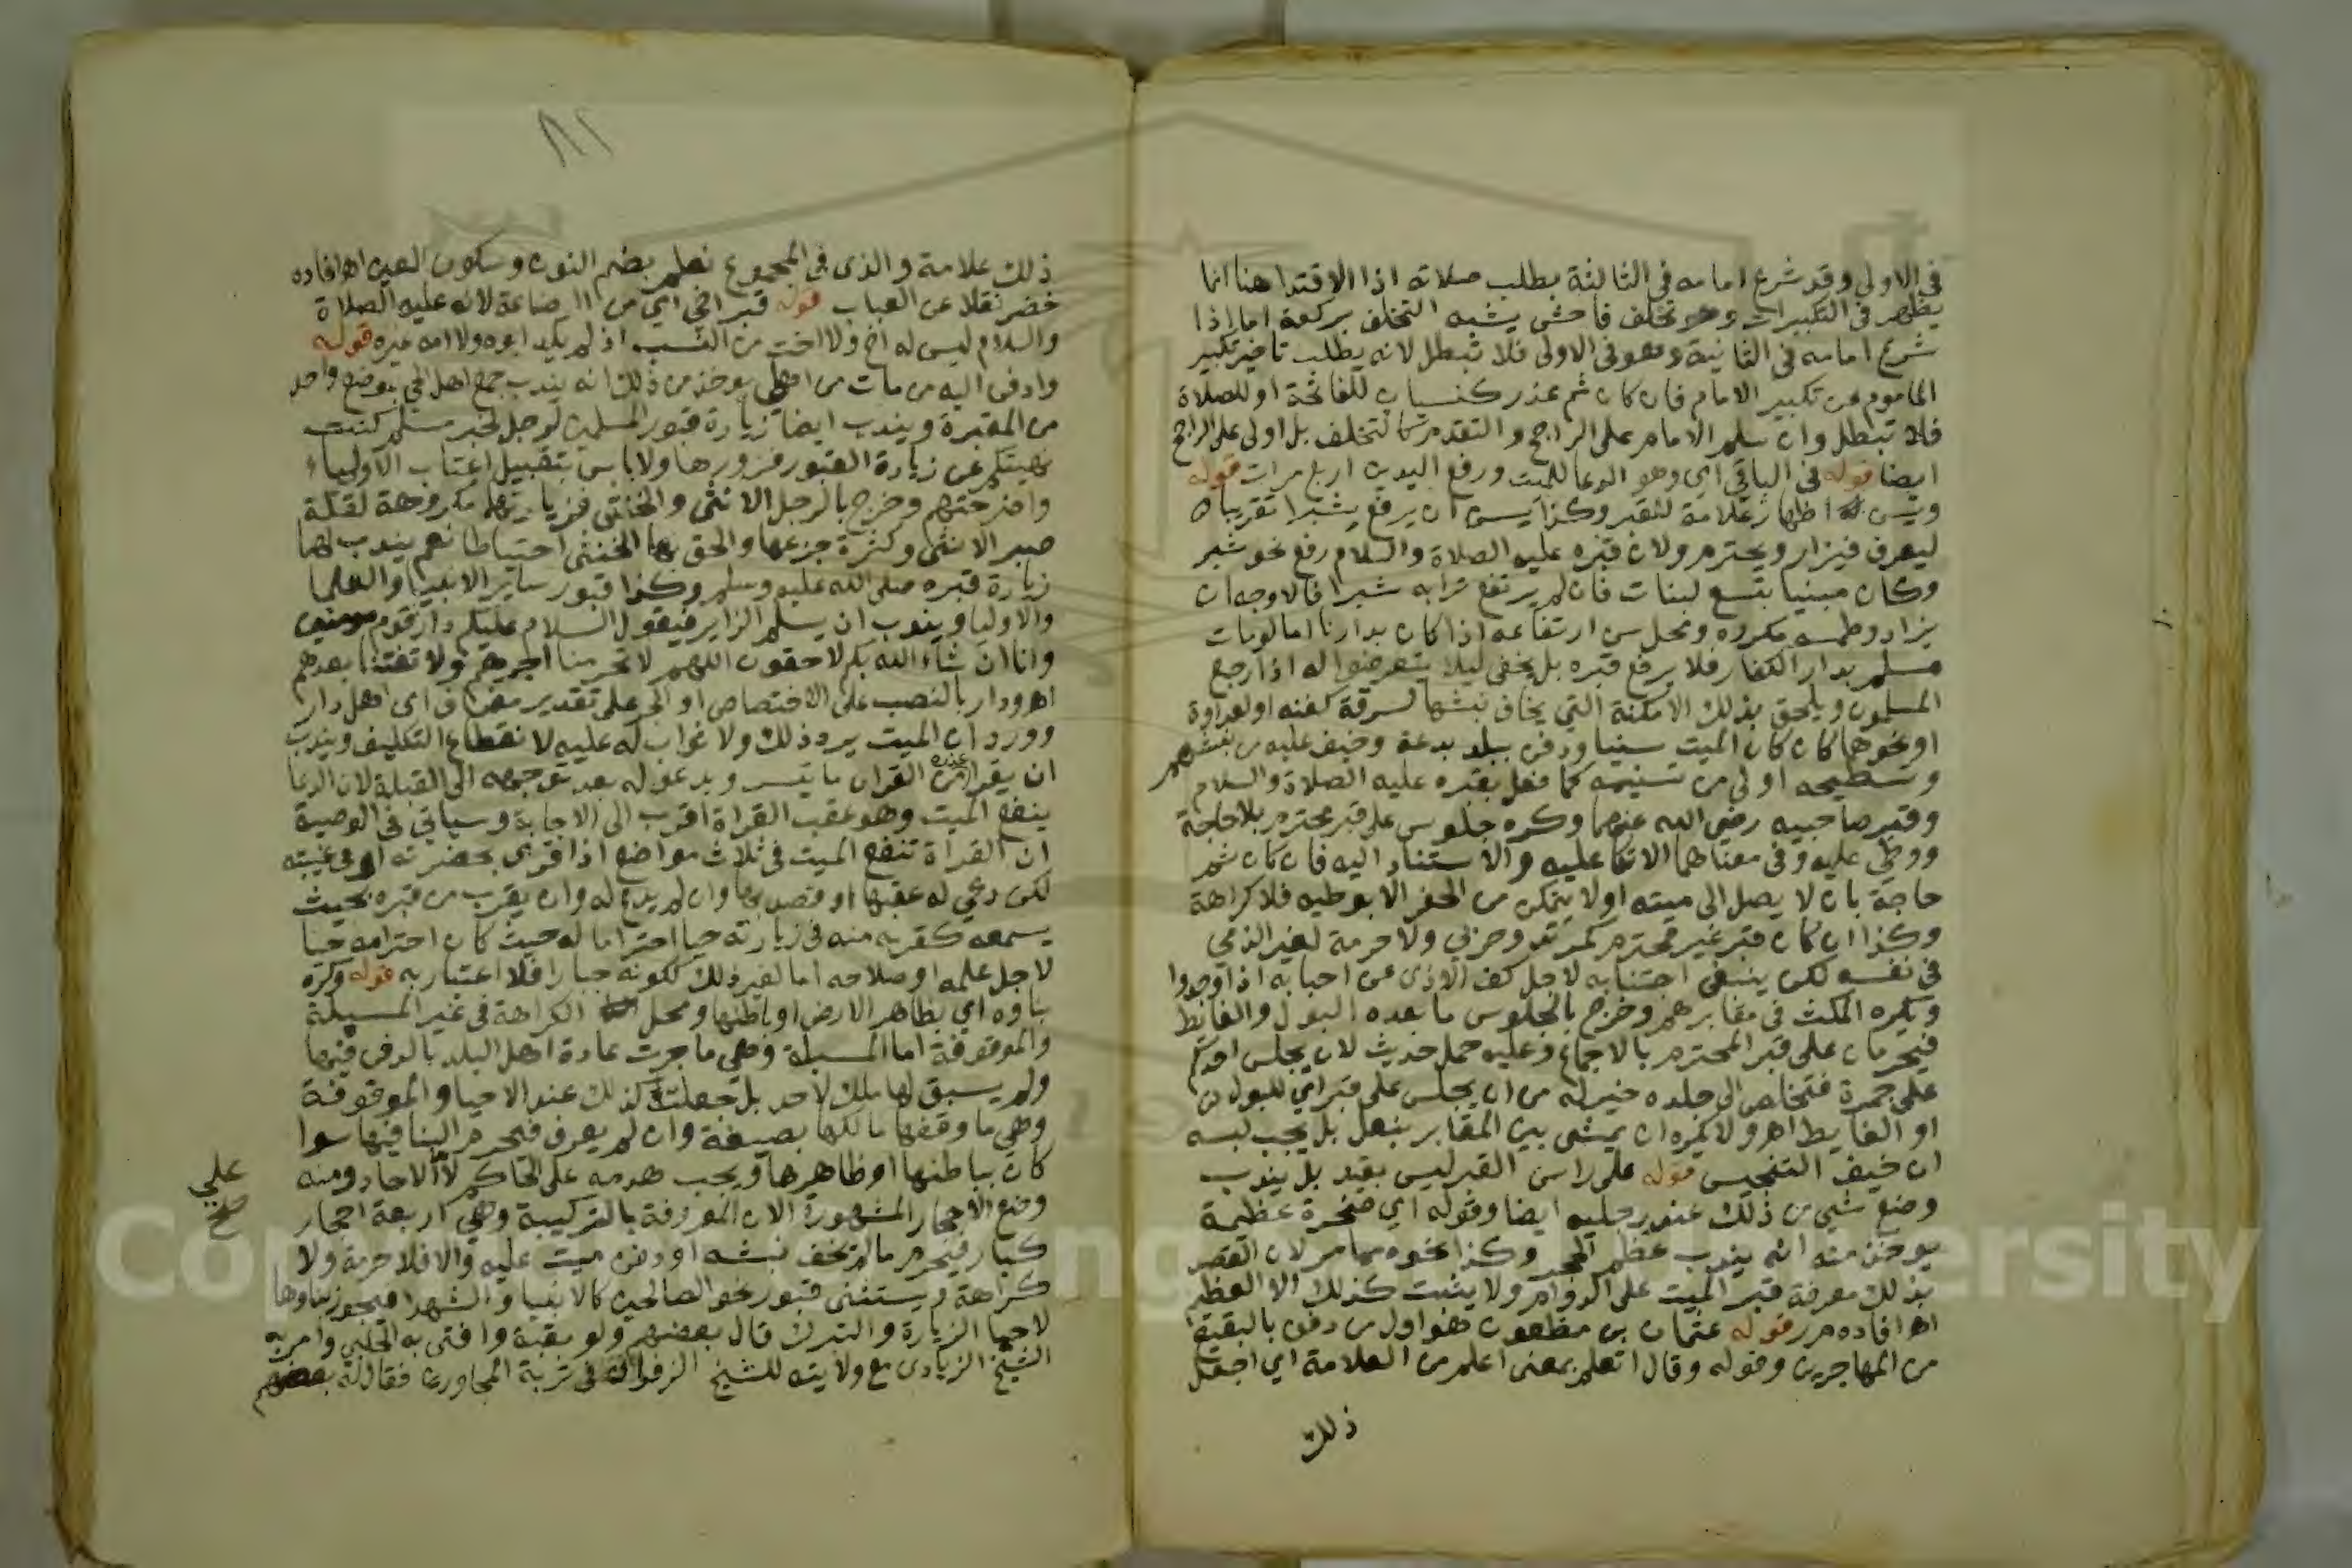 في الاولى وقد شرع امامه في الثالثة بطلب صلاته اذا الاقتدا هنا انما
يظهر في التكبيرات وهو تخلف فاحش يشبه التخلف بركعة اما اذا
شرع امامه في الثانية وهو في الاولى فلا تبطل لانه يطلب تاخير تكبير
الماموم عن تكبير الامام فان كان ثم عذر كنسيان للفاتحة او للصلاة
فلا تبطل وان سلم الامام على الراجح والتقدم كالتخلف بل اولى على الراجح
ايضا قوله في الباقي اي وهو الدعا للميت ورفع اليدين اربع مرات قوله
ويسن اظهار علامة للقبر وكذا يسن ان يرفع شبرا تقريبا
ليعرف فيزار ويحترم ولان قبره عليه الصلاة والسلام رفع نحو شبر
وكان مبنيا بتسع لبنات فان لم يرتفع ترابه شبرا فالاوجه ان
يزاد وطمسه مكروه ومحل سن ارتفاعه اذا كان بدارنا اما لو مات
مسلم بدار الكفار فلا يرفع قبره بل يخفى ليلا يتعرضوا له اذا رجع
المسلمون ويلحق بذلك الامكنة التي يخاف نبشها لسرقة كفنه او لعداوة
او نحوها كان كان الميت سنيا ودفن ببلد بدعة وخيف عليه من نبشهم
وتسطيحه اولى من تسنيمه كما فعل بقبره عليه الصلاة والسلام
وقبر صاحبيه رضي الله عنهما وكره جلوس على قبر محترم بلا حاجة
ووطئ عليه وفي معناهما الاتكا عليه والاستناد اليه فان كان ثم
حاجة بان لا يصل الى ميته او لا يتمكن من الحفر الا بوطيه فلا كراهة
وكذا ان كان قبر غير محترم كمرتد وحربي ولا حرمة لقبر الذمي
في نفسه لكن ينبغي اجتنابه لاجل كف الاذى عن احبابه اذا وجدوا
ويكره المكث في مقابرهم وخرج بالجلوس ما بعده البول والغايط
فيحرمان على قبر المحترم بالاجماع وعليه حمل حديث لان يجلس احدكم
على جمرة فتخلص الى جلده خير له من ان يجلس على قبر اي للبول
او الغايط اهر ولا يكره ان يمشى بين المقابر بنعل بل يجب لبسه
ان خيف التنجيس قوله على راس القبر ليس بقيد بل يندب
وضع شي من ذلك عند رجليه ايضا وقوله اي صخرة عظيمة
يوخذ منه انه يندب عظم الحجر وكذا نحوه مما مر لان القصد
بذلك معرفة قبر الميت على الدوام ولا يثبت كذلك الا العظيم
اهر افاده م ر قوله عثمان بن مظعون هو اول من دفن بالبقيع
من المهاجرين وقوله وقال اتعلم بمعنى اعلم من العلامة اي اجعل
ذلك
٨١
ذلك علامة والذي في المجموع نعلم بضم النون وسكون العين اهر افاده
خضر نقلا عن العباب قوله قبر اخي اي من الرضاعة لانه عليه الصلاة
والسلام ليس له اخ ولا اخت من النسب اذ لم يلد ابوه ولا امه غيره قوله
وادفن اليه من مات من اهلي يوخذ من ذلك انه يندب جمع اهل الميت بموضع واحد
من المقبرة ويندب ايضا زيارة قبور المسلمين لرجل لخبر مسلم كنت
نهيتكم عن زيادة القبور فزوروها ولا باس بتقبيل اعتاب الاولياء
واضرحتهم وخرج بالرجل الانثى والخنثى فزيارتهما مكروهة لقلة
صبر الانثى وكثرة جزعها والحق بها الخنثى احتياطا نعم يندب لهما
زيارة قبره صلى الله عليه وسلم وكذا قبور ساير الانبيا والعلما
والاوليا ويندب ان يسلم الزاير فيقول السلام عليكم دار قوم مومنين
وانا ان شاء الله بكم لاحقون اللهم لا تحرمنا اجرهم ولا تفتنا بعدهم
اهر ودار بالنصب على الاختصاص او الجر على تقدير مضاف اي اهل دار
وورد ان الميت يرد ذلك ولا ثواب له عليه لانقطاع التكليف ويندب
ان يقرا عنده من القران ما تيسر ويدعو له بعد توجهه الى القبلة لان الدعا
ينفع الميت وهو عقب القراة اقرب الى الاجابة وسياتي في الوصية
ان القراة تنفع الميت في ثلاث مواضع اذا قرى بحضرته او في غيبته
لكن دعي له عقبها او قصد بها وان لم يدع له وان يقرب من قبره بحيث
يسمعه كقربه منه في زيارته حيا احتراما له حيث كان احترامه حيا
لاجل علمه او صلاحه اما لغير ذلك لكونه جبارا فلا اعتبار به قوله وكره
بناوه اي بظاهر الارض او باطنها ومحل الكراهة في غير المسبلة
والموقوفة اما المسبلة وهي ما جرت عادة اهل البلد بالدفن فيها
ولم يسبق لها ملك لاحد بل جعلت كذلك عند الاحيا والموقوفة
وهي ما وقفها مالكها بصيغة وان لم يعرف فيحرم البنا فيها سوا
كان بباطنها او ظاهرها ويجب هدمه على الحاكم لا الاحاد ومنه
علي
صح
وضع الاحجار المشهورة الان المعروفة بالتركيبة وهي اربعة احجار
كبار فيحرم ما لم يخف نبشه او دفن ميت عليه والا فلا حرمة ولا
كراهة ويستثنى قبور نحو الصالحين كالانبيا والشهدا فيجوز بناوها
لاحيا الزيارة والتبرك قال بعضهم ولو بقبة وافتى به الحلبي وامر به
الشيخ الزيادي مع ولايته للشيخ في تربة المجاورين فقال له بعضهم
Cop ng ersity